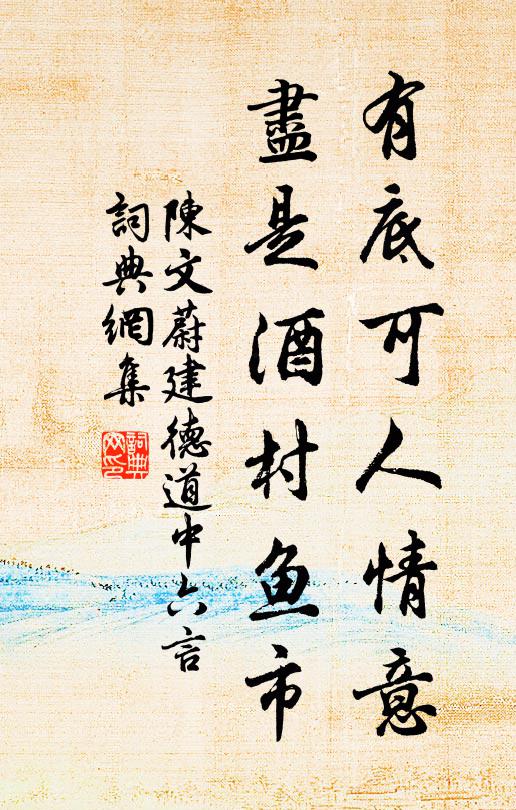 有底可人情意
盡是酒村魚市
陳文蔚建德道中六言
詞典網集
詞典
网印